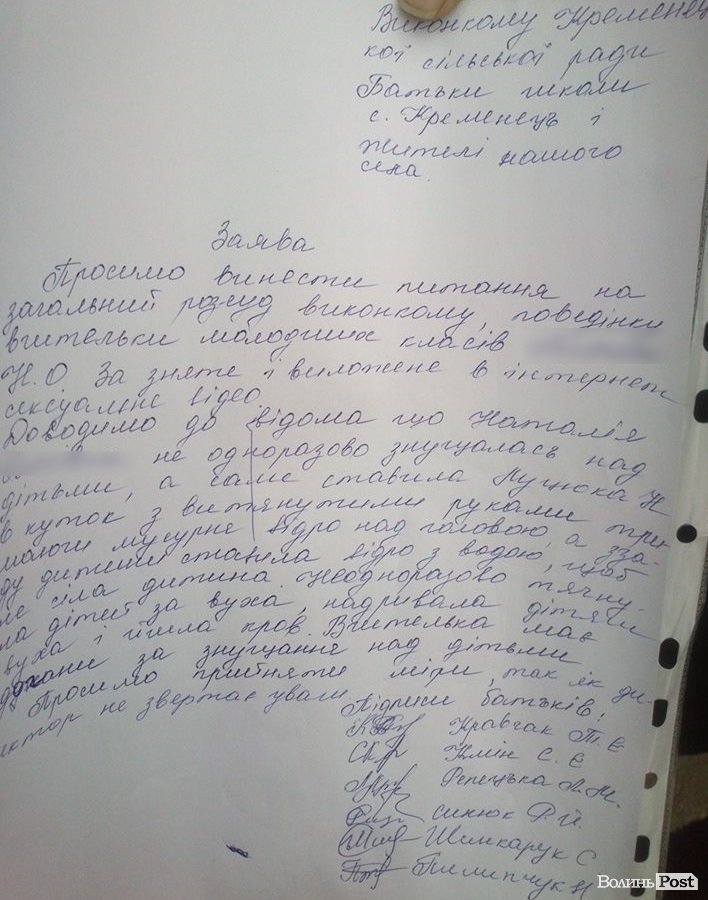 Виконкому Кременец
кої сільської ради
Батьки школи
с. Кременець і
жителі нашого
села.
Заява
Просимо винести питання на
загальний розсуд виконкому, поведінки
вчительки молодших класів
Н.О. За зняте і виложене в інтернет
сексуальне відео.
Доводимо до відома що Наталія
не одноразово знущалась над
дітьми, а саме ставила Луцюка Н
в куток з витянутими руками три
маючи мусурне відро над головою, а зза-
ду дитини ставила відро з водою, щоб
не сіла дитина. Неоднократно тягну-
ла дітей за вуха, надривала дітячи
вуха і йшла кров. Вчителька має
догани за знущання над дітьми
Просимо прийняти міри, так як ди-
ректор не звертає уваги
Підписи батьків:
Кравчак Т. Є
Клін С. Є
Репецька Л. М.
Синюк Р. Й.
Шимкарук С
Пилипчук Н
ВолиньPost